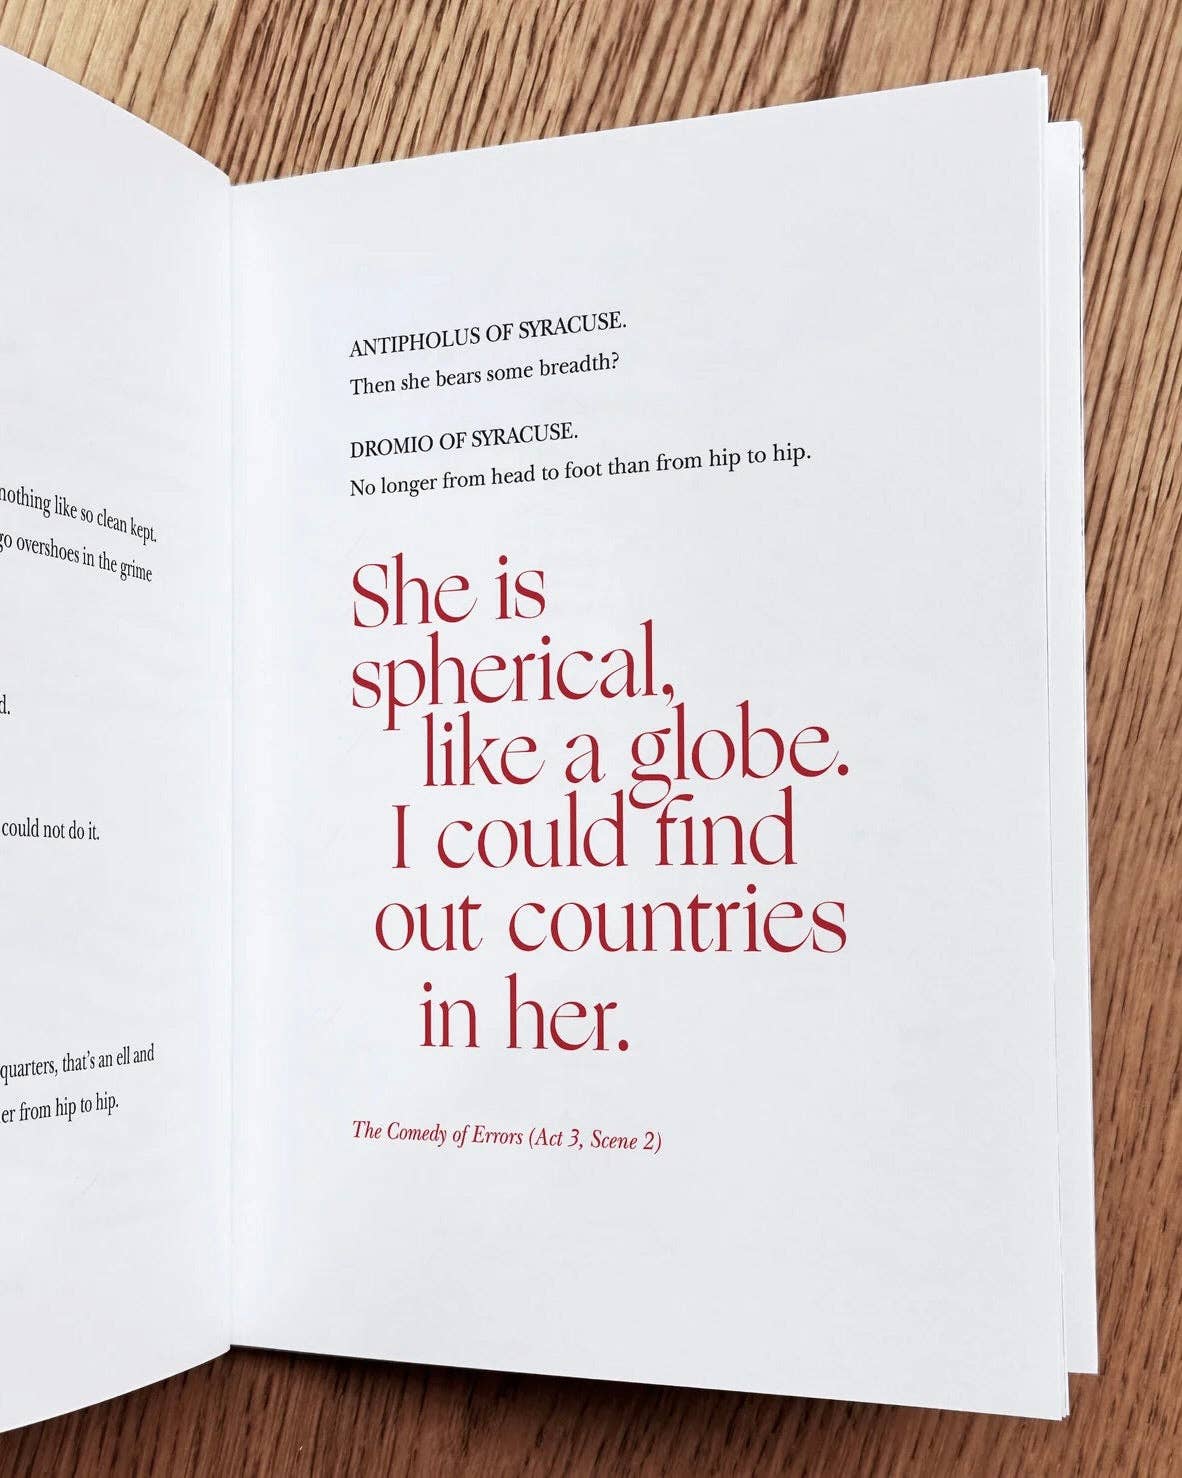 nothing like so clean kept.
go overshoes in the grime
d.
could not do it.
quarters, that's an ell and
er from hip to hip.
ANTIPHOLUS OF SYRACUSE.
Then she bears some breadth?
DROMIO OF SYRACUSE.
No longer from head to foot than from hip to hip.
She is
spherical,
like a globe.
I could find
out countries
in her.
The Comedy of Errors (Act 3, Scene 2)